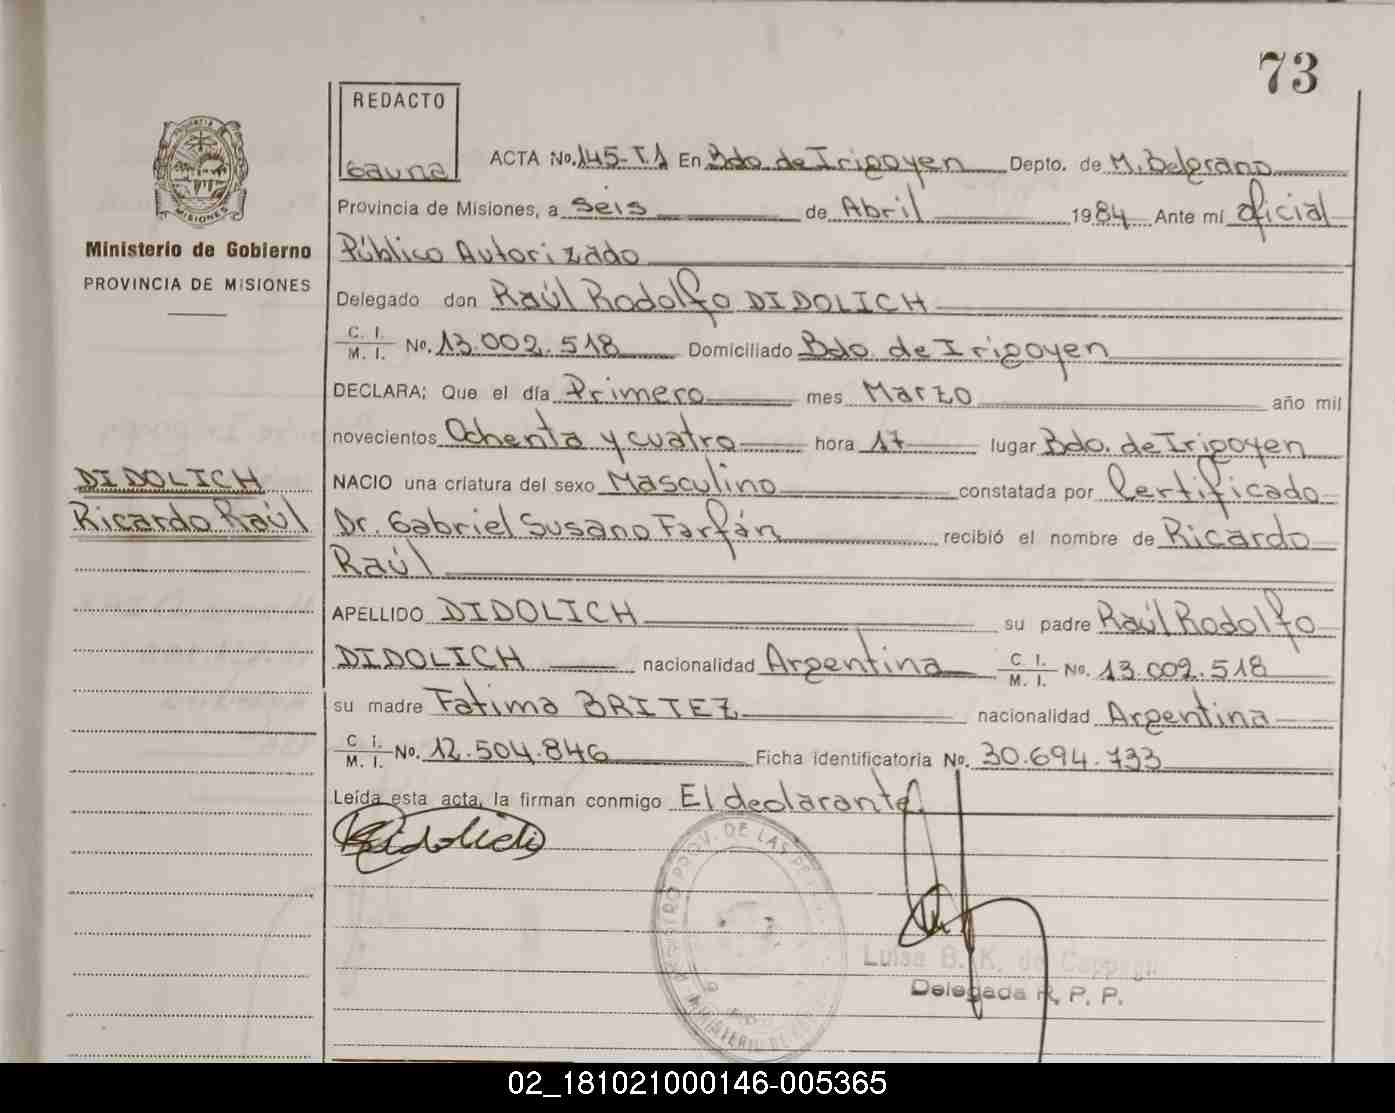 73
REDACTO
Gauna
ACTA No. 145-T.1 En Bdo de Irigoyen Depto. de M. Belgrano
Provincia de Misiones, a Seis de Abril 1984 Ante mí Oficial
Público Autorizado
Delegado don Raúl Rodolfo DIDOLICH
C. I. / M. I. No. 13.002.518 Domiciliado Bdo. de Irigoyen
DECLARA; Que el día Primero mes Marzo año mil
novecientos Ochenta y cuatro hora 17 lugar Bdo. de Irigoyen
NACIO una criatura del sexo Masculino constatada por Certificado
Dr. Gabriel Susano Farfán recibió el nombre de Ricardo
Raúl
APELLIDO DIDOLICH su padre Raúl Rodolfo
DIDOLICH nacionalidad Argentina C. I. / M. I. No. 13.002.518
su madre Fatima BRITEZ nacionalidad Argentina
C. I. / M. I. No. 12.504.846 Ficha identificatoria No. 30.694.733
Leída esta acta, la firman conmigo El declarante
PROVINCIA
MISIONES
Ministerio de Gobierno
PROVINCIA DE MISIONES
DIDOLICH
Ricardo Raúl
PROV. DE LAS
Luisa B. K. de
Delegada R. P. P.
02_181021000146-005365